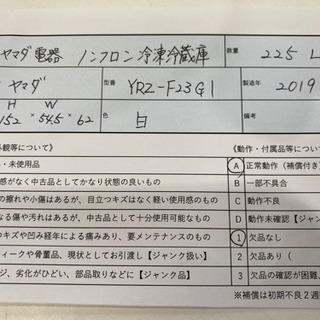 ヤマダ電器 ノンフロン冷凍冷蔵庫 数量 225L
ヤマダ 型番 YRZ-F23G1 製造年 2019
H W
152 × 54.5 × 62 色 白 備考
外観等について》 《動作・付属品等について》
・未使用品 A 正常動作(補償付き)
感がなく中古品としてかなり状態の良いもの B 一部不具合
の擦れや小傷はあるが、目立つキズはなく軽い使用感のもの C 動作不良
なる傷や汚れはあるが、中古品として十分使用可能なもの D 動作未確認【ジャン
キズや凹み経年による痛みあり、要メンテナンスのもの 1 欠品なし
ィークや骨董品、現状としてお引渡し【ジャンク扱い】 2 欠品あり(
ジ、劣化がひどい、部品取りなどに【ジャンク品】 3 欠品の確認が困難、
※補償は初期不良2週